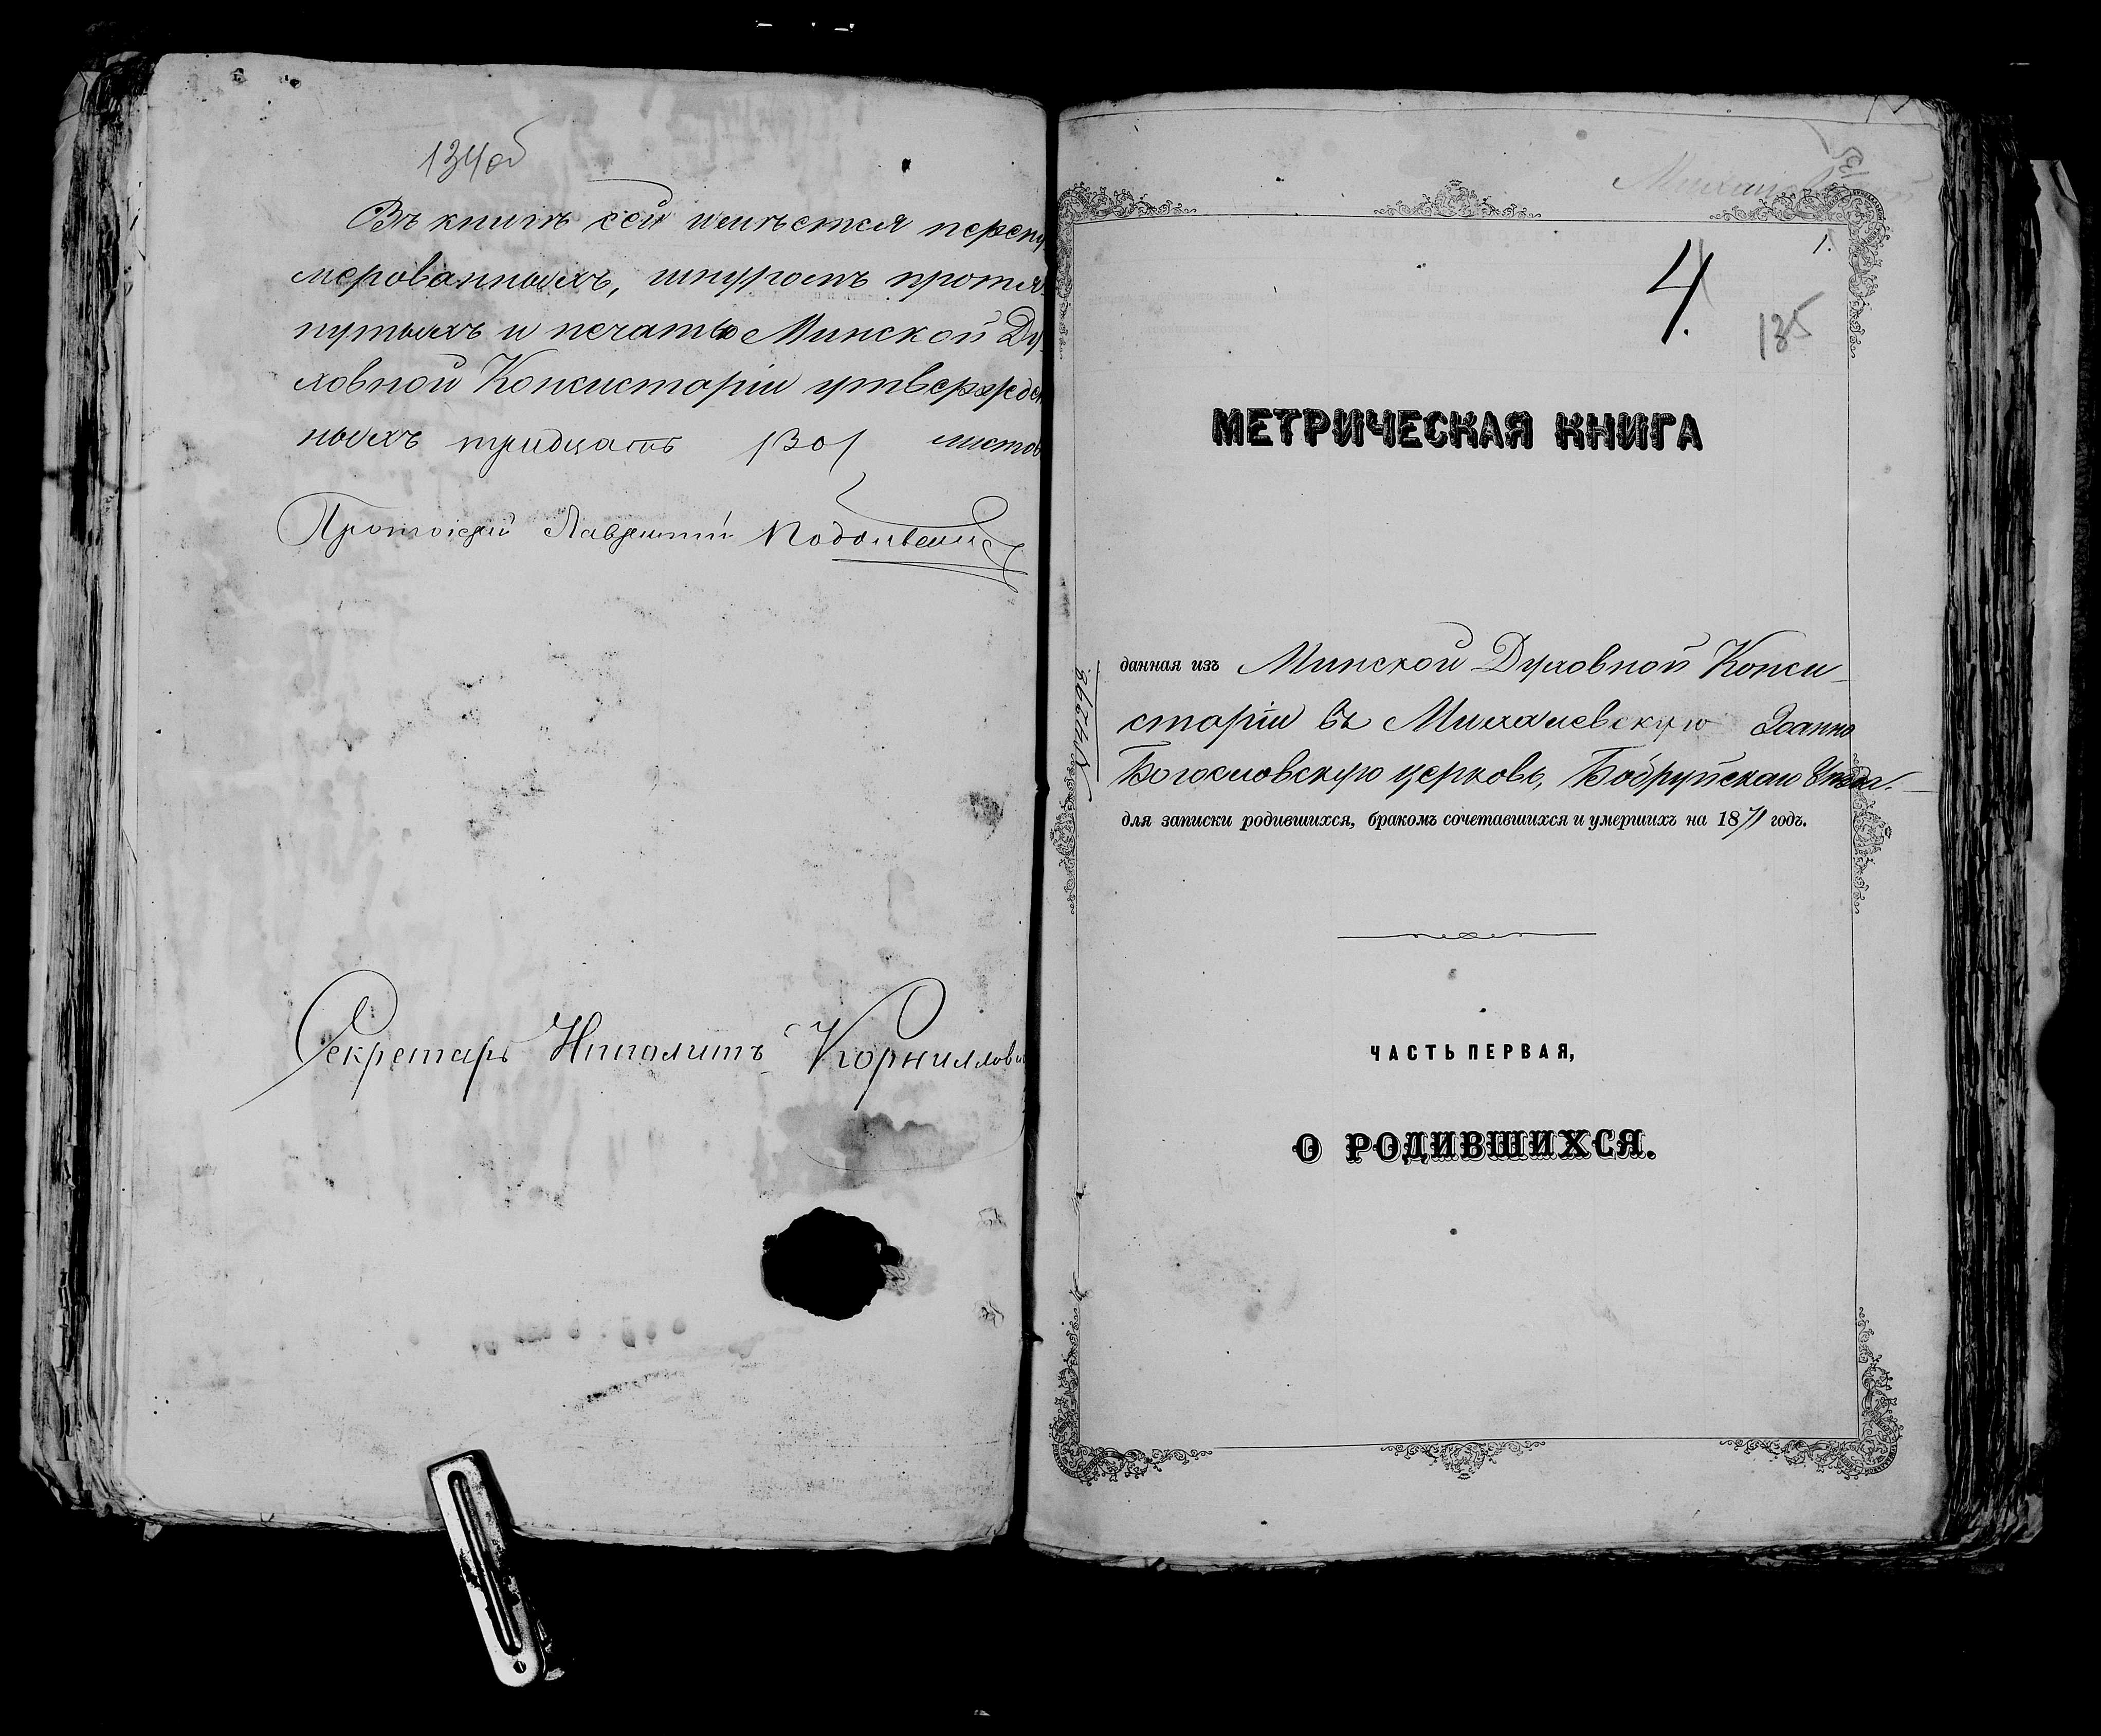 134об
Въ книгѣ сей имѣется перену
мерованныхъ, шнуромъ протя
нутыхъ и печатью Минской Ду
ховной Консисторіи утвержден
ныхъ тридцать /30/ листов
Протоіерей Лаврентій
Секретарь Ипполитъ Корнилов
135
1.
4.
135
МЕТРИЧЕСКАЯ КНИГА
данная изъ Минской Духовной Конси-
сторіи въ Михалевскую Іоанно
Богословскую церковь, Бобруйскаго Уѣзда.
для записки родившихся, бракомъ сочетавшихся и умершихъ на 1871 годъ.
ЧАСТЬ ПЕРВАЯ,
О РОДИВШИХСЯ.